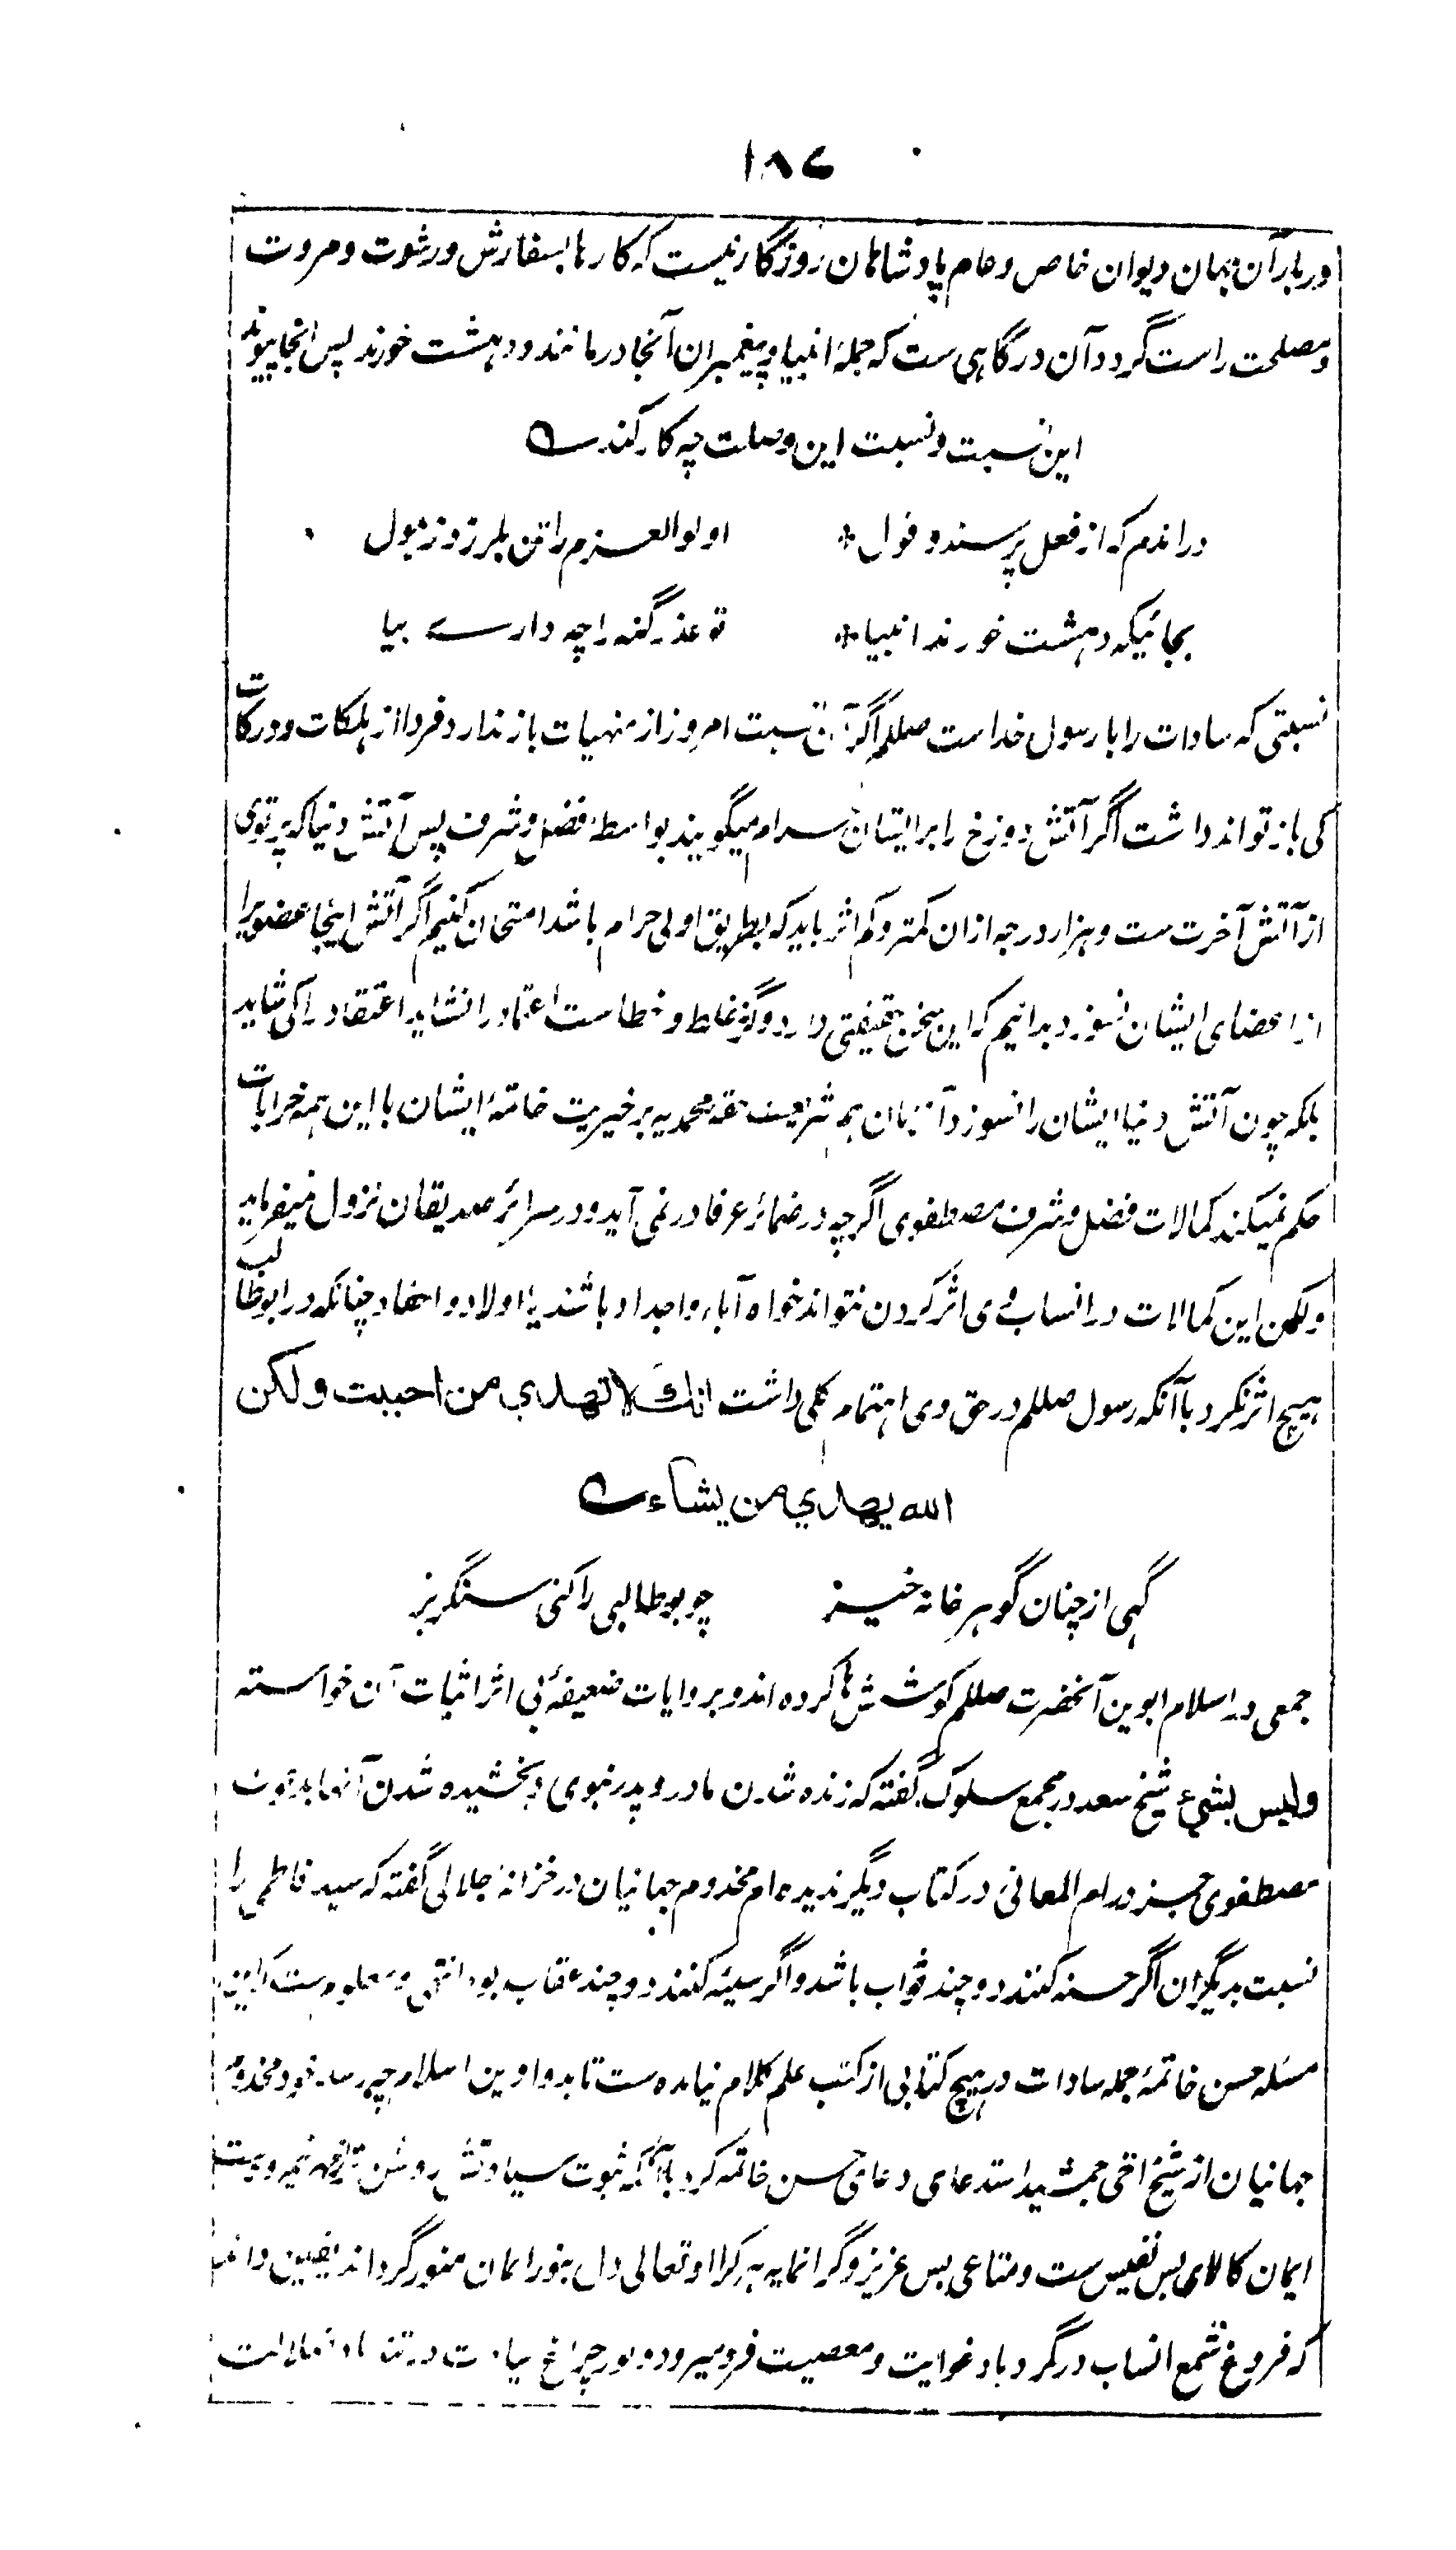 ۱۸۶
دربار آن جهان دیوان خاص و عام پادشاهان روزگار نیست که کارها بسفارش و رشوت و مروت
و مصلحت راست گردد آن درگاهی ست که جملهٔ انبیا و پیغمبران آنجا درمانند و دهشت خورند پس انجا پیوند
این نسبت و نسبت این وصلت چه کار کند
دراندم که از فعل پرسند و قول * اولوالعزم را تن بلرزد ز هول
بجائیکه دهشت خورند انبیا * تو عذر گنه را چه داری بیا
نسبتی که سادات را با رسول خداست صللم اگر آن نسبت امروز از منهیات باز ندارد فردا از هلکات و درکات
کی باز تواند داشت اگر آتش دوزخ را بر ایشان حرام میگویند بواسطهٔ فضل و شرف پس آتش دنیا که پرتوی
از آتش آخرت ست و هزار درجه ازان کمتر و کم اثر باید که بطریق اولی حرام باشد امتحان کنیم اگر آتش اینجا عضویرا
از اعضای ایشان نسوزد بدانیم که این سخن حقیقتی دارد وگرنه غلط و خطاست اعتماد را نشاید اعتقاد را کی شاید
بلکه چون آتش دنیا ایشان را نسوزد آنزمان هم شریعت حقه محمدیه بر خیریت خاتمهٔ ایشان با این همه خرابات
حکم نمیکند کمالات فضل و شرف مصطفوی اگرچه در ضمائر عرفا در نمی آید و در سرائر صدیقان نزول نمیفرماید
ولکن این کمالات در انساب وی اثر کردن نتواند خواه آباء و اجداد باشند یا اولاد و احفاد چنانکه در ابوطالب
هیچ اثر نکرد با آنکه رسول صللم در حق وی اهتمام کلی داشت انك لا تهدي من احببت ولكن
الله يهدي من يشاء
گهی از چنان گوهر خانه خیز چو بوطالبی را کنی سنگریز
جمعی در اسلام ابوین آنحضرت صللم کوشش ها کرده اند و بروایات ضعیفهٔ بی اثر اثبات آن خواسته
ولیس بشیء شیخ سعد در مجمع سلوک گفته که زنده شدن مادر و پدر نبوی و بخشیده شدن آنها بدعوت
مصطفوی جز در ام المعانی در کتاب دیگر ندیده ام مخدوم جهانیان در خزانهٔ جلالی گفته که سید فاطمی را
نسبت بدیگران اگر حسنه کنند دو چند ثواب باشد و اگر سیئه کنند دو چند عقاب بود انتهی و معلوم ست که این
مسئله حسن خاتمهٔ جمله سادات در هیچ کتابی از کتب علم کلام نیامده ست تا بدواوین اسلام چه رسد خود مخدوم
جهانیان از شیخ اخی جمشید استدعای دعای حسن خاتمه کرد با آنکه ثبوت سیادتش روشن تر از مهر نیمروز ست
ایمان کالای بس نفیس ست و متاعی بس عزیز و گرانمایه هر کرا او تعالی دل بنور ایمان منور گرداند یقین داند
که فروغ شمع انساب در گرد باد غوایت و معصیت فرو میرود و نور چراغ سیادت در تند باد ضلالت